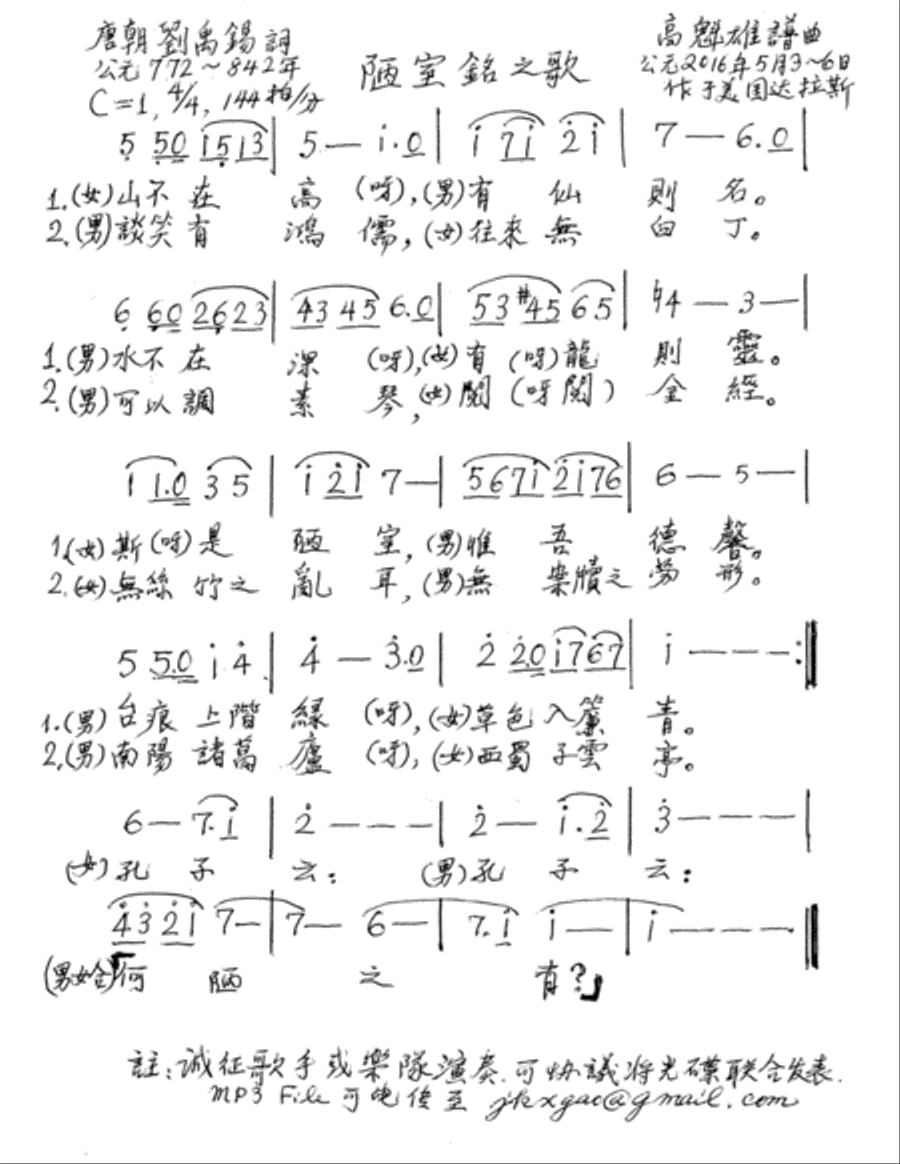 唐朝劉禹錫詞
公元772~842年
C=1, 4/4, 144拍/分
陋室銘之歌
高魁雄譜曲
公元2016年5月3~6日
作于美国达拉斯
5 50 1513 | 5— i.0 | i 7i 2i | 7— 6.0 |
1.(女)山不在 高(呀),(男)有 仙 則 名。
2.(男)談笑有 鴻 儒,(女)往來無 白 丁。
6 60 2623 | 43 45 6.0 | 53 #45 65 | ♮4—3— |
1.(男)水不在 深 (呀),(女)有(呀)龍 則 靈。
2.(男)可以調 素 琴,(女)閱(呀閱) 金 經。
i i.0 35 | i 2i 7— | 567i 2i76 | 6—5— |
1.(女)斯(呀)是 陋 室,(男)惟 吾 德 馨。
2.(女)無絲竹之 亂 耳,(男)無 案牘之 勞 形。
5 5.0 i 4 | 4— 3.0 | 2 2.0 i7 67 | i——— :‖
1.(男)台痕上階 緑 (呀),(女)草色入簾 青。
2.(男)南陽諸葛 廬 (呀),(女)西蜀子雲 亭。
6— 7.i | 2——— | 2— i.2 | 3——— |
(女)孔 子 云: (男)孔 子 云:
43 2i 7— | 7— 6— | 7.i i— | i——— ‖
(男女合)「何 陋 之 有?」
註:诚征歌手或樂隊演奏.可协議将光碟联合发表.
MP3 File 可电传至 jkxgao@gmail.com